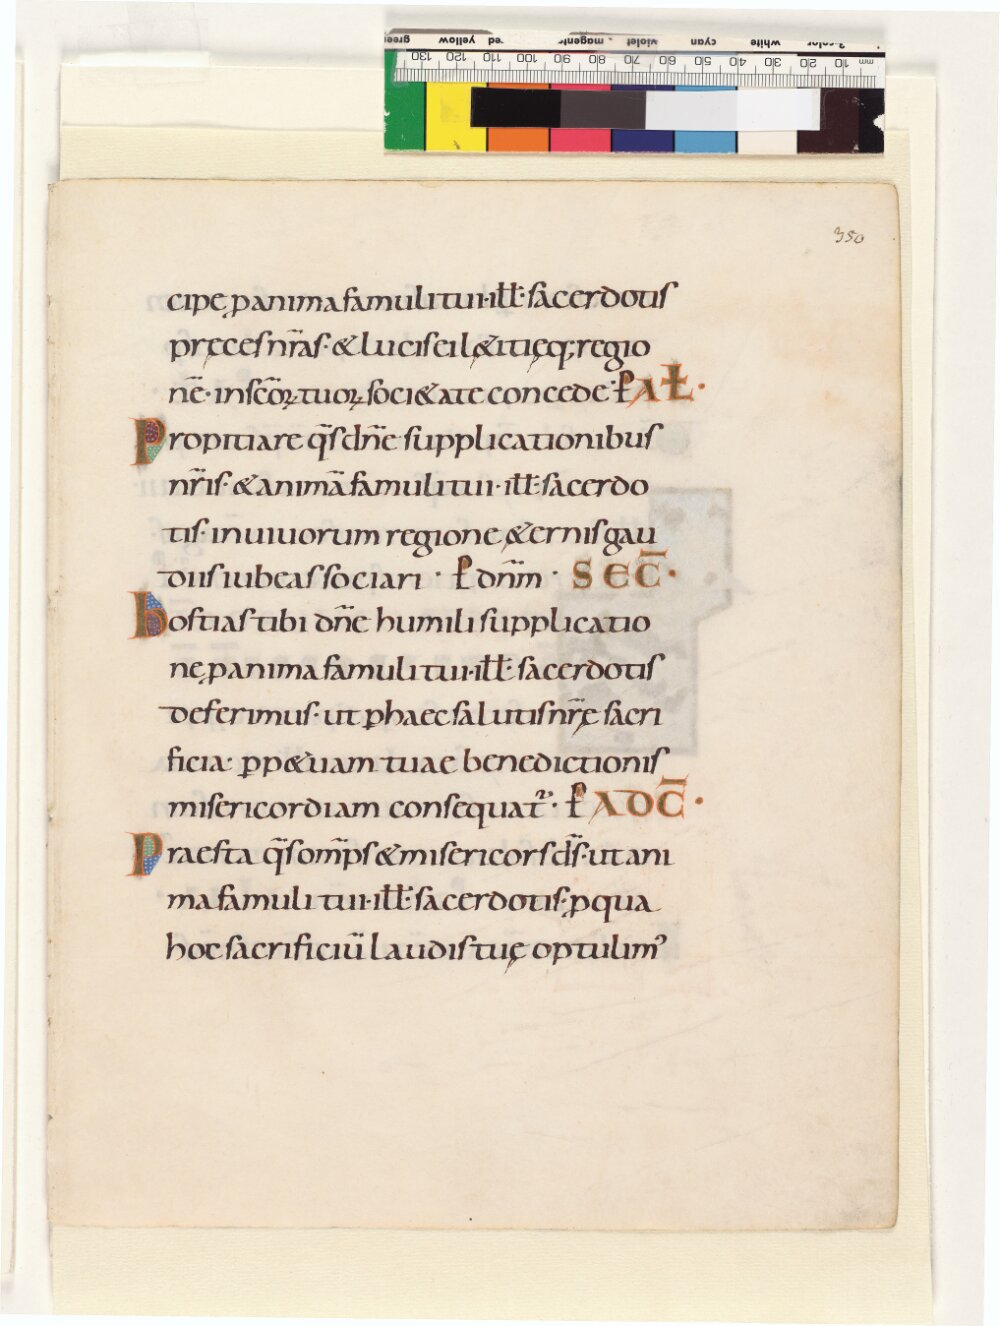 green yellow red magenta violet cyan white 3-color
130 120 110 100 90 80 70 60 50 40 30 20 10 mm
350
cipe ꝓ anima famuli tui·ill̅· sacerdotis
pręces nr̅as· & lucis eil&itięq; regio
ne̅· in sc̅oꝝ tuoꝝ soci&ate concede· ꝑ AŁ·
Propitiare qs̅ dn̅e supplicationibus
nr̅is· & anima̅ famuli tui·ill̅· sacerdo
tis· in uiuorum regione &ernis gau
diis iubeas sociari · ꝑ dn̅m · SEC̅·
hostias tibi dn̅e humili supplicatio
ne ꝓ anima famuli tui·ill̅· sacerdotis
deferimus· ut ꝑ haec salutis nr̅ę sacri
ficia· ꝑp&uam tuae benedictionis
misericordiam consequat᷑· ꝑ ADC̅·
Praesta qs̅ om̅ps & misericors ds̅· ut ani
ma famuli tui·ill̅· sacerdotis· ꝓ qua
hoc sacrificiu̅ laudis tuę optulimꝰ